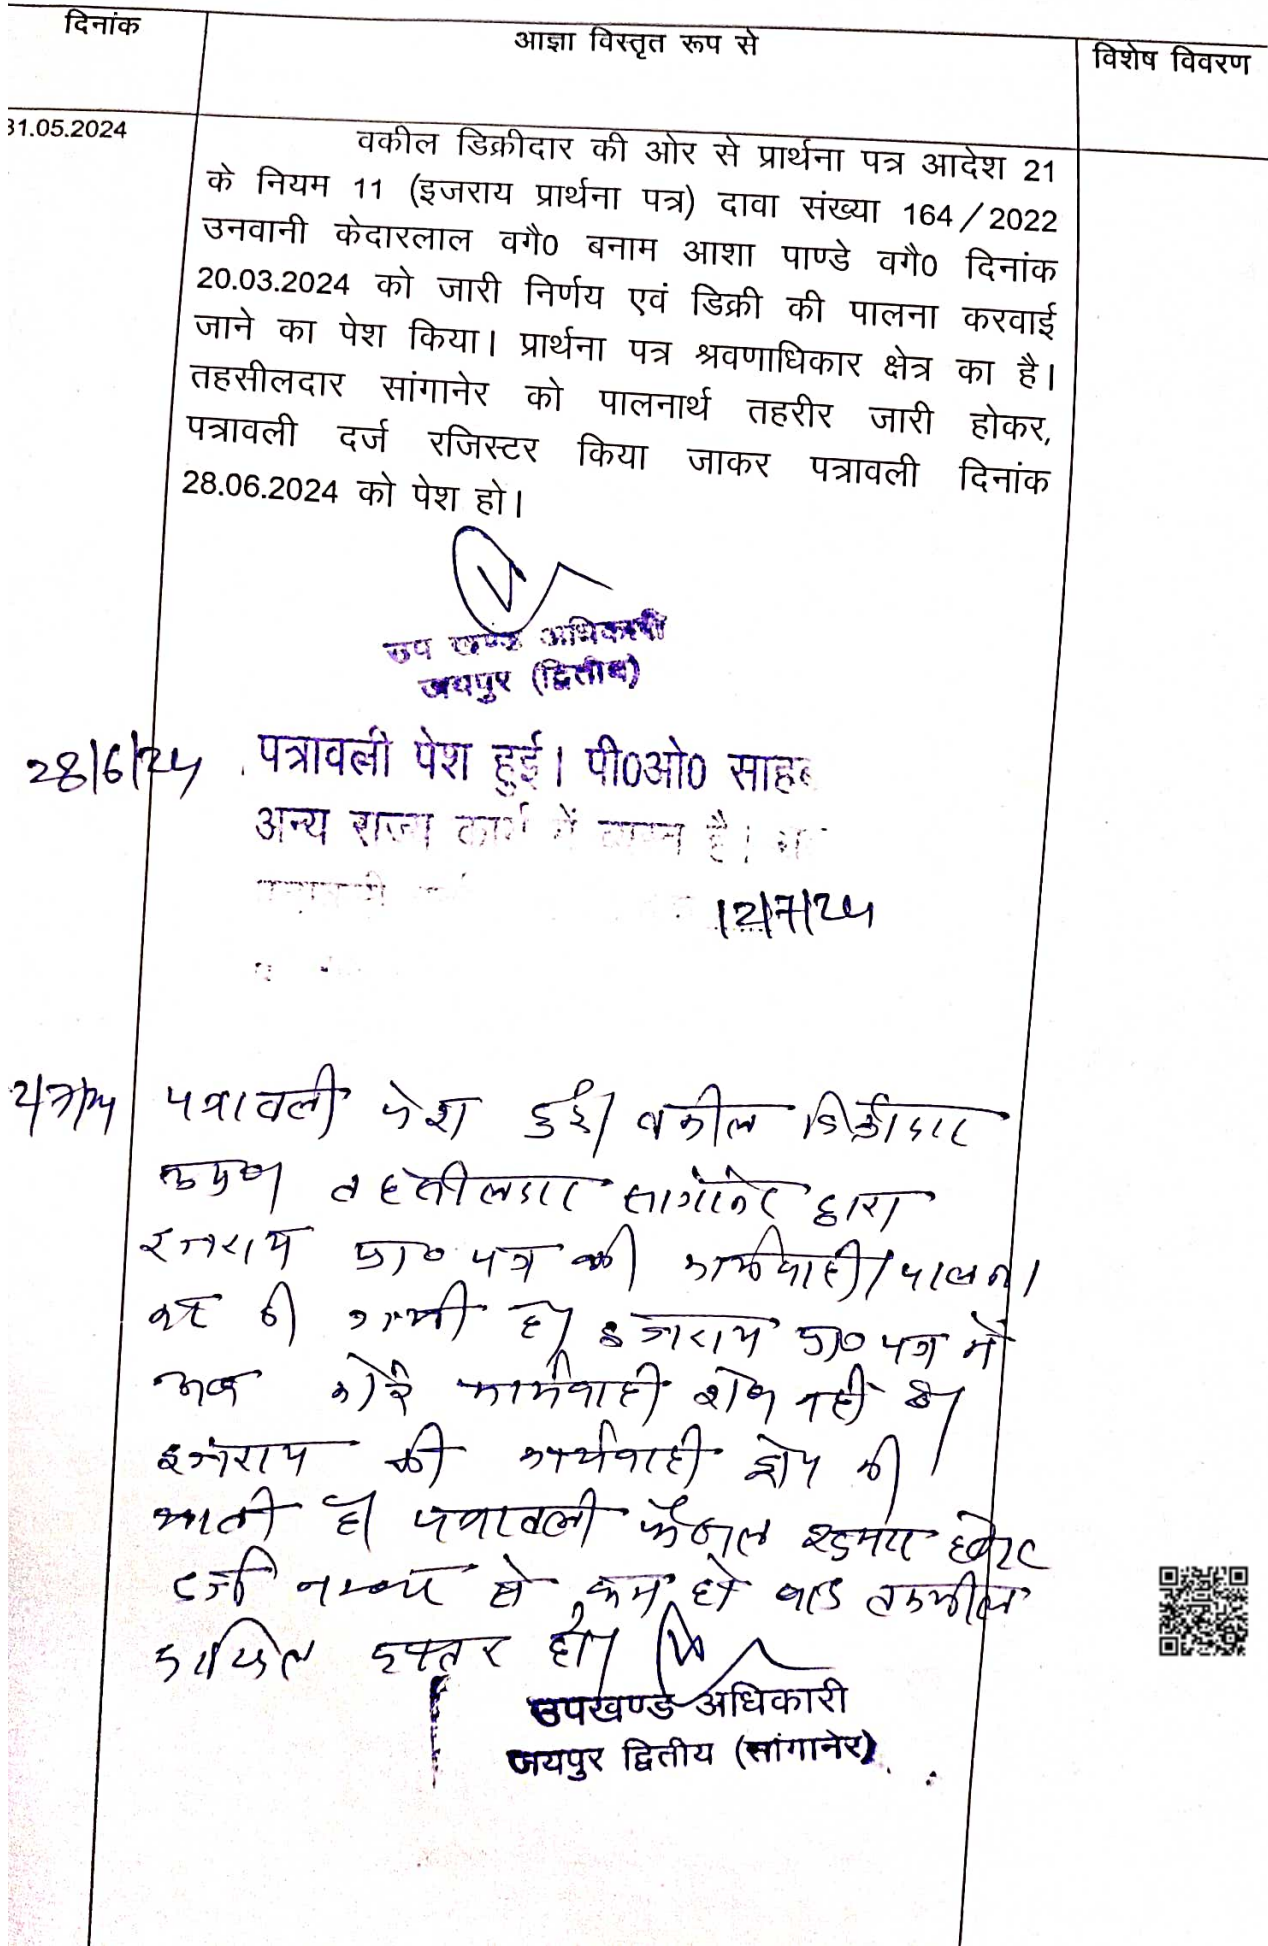 दिनांक
आज्ञा विस्तृत रूप से
विशेष विवरण
31.05.2024
वकील डिक्रीदार की ओर से प्रार्थना पत्र आदेश 21
के नियम 11 (इजराय प्रार्थना पत्र) दावा संख्या 164/2022
उनवानी केदारलाल वगै0 बनाम आशा पाण्डे वगै0 दिनांक
20.03.2024 को जारी निर्णय एवं डिक्री की पालना करवाई
जाने का पेश किया। प्रार्थना पत्र श्रवणाधिकार क्षेत्र का है।
तहसीलदार सांगानेर को पालनार्थ तहरीर जारी होकर,
पत्रावली दर्ज रजिस्टर किया जाकर पत्रावली दिनांक
28.06.2024 को पेश हो।
उप खण्ड अधिकारी
जयपुर (द्वितीय)
28/6/24
पत्रावली पेश हुई। पी0ओ0 साहब
अन्य राज्य कार्य में व्यस्त है।
12/7/24
पत्रावली पेश हुई। वकील डिक्रीदार
तहसीलदार सांगानेर द्वारा
इजराय प्रा० पत्र की कार्यवाही/पालना
कर दी गयी है। इजराय प्रा० पत्र में
अब कोई कार्यवाही शेष नहीं है।
इजराय की कार्यवाही की
जाती है। पत्रावली फैसल शुमार होकर
नम्बर से कम हो बाद तकमील
दाखिल दफ्तर हो।
उपखण्ड अधिकारी
जयपुर द्वितीय (सांगानेर)